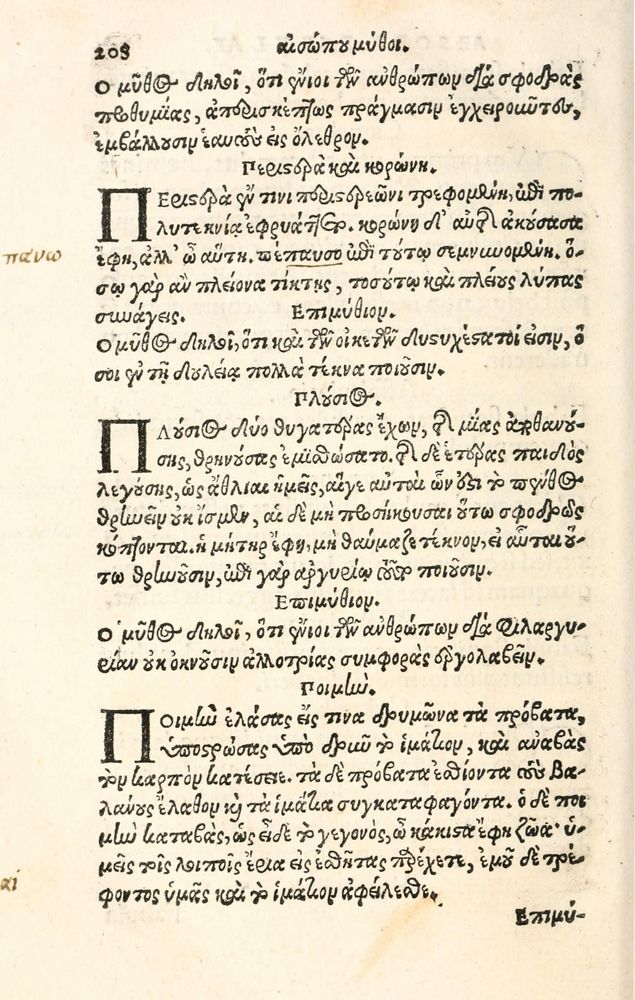 208 αἰσώπου μύθοι.
Ο μῦθος δηλοῖ, ὅτι ἔνιοι τῶν ἀνθρώπων διὰ σφοδρὰς
προθυμίας, ἀπερισκέπτως πράγμασιν ἐγχειροῦντες,
ἐμβάλλουσιν ἑαυτοὺς εἰς ὄλεθρον.
Περιστερὰ καὶ κορώνη.
Περιστερὰ ἔν τινι περιστερεῶνι τρεφομένη, ἐπὶ πο-
λυτεκνίᾳ ἐφρυάττετο. κορώνη δ' αὐτῆς ἀκούσασα
πάνω
ἔφη, ἀλλ' ὦ αὕτη. πέπαυσο ἐπὶ τούτῳ σεμνυνομένη. ὅ-
σῳ γὰρ ἂν πλείονα τίκτῃς, τοσούτῳ καὶ πλείους λύπας
συνάγεις. Επιμύθιον.
Ο μῦθος δηλοῖ, ὅτι καὶ τῶν οἰκετῶν δυστυχέστατοί εἰσιν, ὅ
σοι ἐν τῇ δουλείᾳ πολλὰ τέκνα ποιοῦσιν.
Πλούσιος.
Πλούσιος δύο θυγατέρας ἔχων, τῆς μιᾶς ἀποθανού-
σης, θρηνούσας ἐμισθώσατο. τῆς δὲ ἑτέρας παιδὸς
λεγούσης, ὡς ἄθλιαι ἡμεῖς, αἵγε αὐταὶ ὧν ἐστὶ τὸ πένθος
θρηνεῖν οὐκ ἴσμεν, αἱ δὲ μὴ προσήκουσαι οὕτω σφοδρῶς
κόπτονται. ἡ μήτηρ ἔφη, μὴ θαύμαζε τέκνον, εἰ αὗται οὕ-
τω θρηνοῦσιν, ἐπὶ γὰρ ἀργυρίῳ τοῦτο ποιοῦσιν.
Επιμύθιον.
Ο μῦθος δηλοῖ, ὅτι ἔνιοι τῶν ἀνθρώπων διὰ φιλαργυ-
ρίαν οὐκ ὀκνοῦσιν ἀλλοτρίας συμφορὰς ἐργολαβεῖν.
Ποιμήν.
Ποιμὴν ἐλάσας εἴς τινα δρυμῶνα τὰ πρόβατα,
ὑποστρώσας ὑπὸ δρυῒ τὸ ἱμάτιον, καὶ ἀναβὰς
τὸν καρπὸν κατέσειε. τὰ δὲ πρόβατα ἐσθίοντα τοὺς βα-
λάνους ἔλαθον καὶ τὰ ἱμάτια συγκαταφαγόντα. ὁ δὲ ποι
μὴν καταβὰς, ὡς εἶδε τὸ γεγονὸς, ὦ κάκιστα ἔφη ζῶα· ὑ-
μεῖς τοῖς λοιποῖς ἔρια εἰς ἐσθῆτας παρέχετε, ἐμοῦ δὲ τρέ-
αί
φοντος ὑμᾶς καὶ τὸ ἱμάτιον ἀφείλεσθε.
Επιμύ-